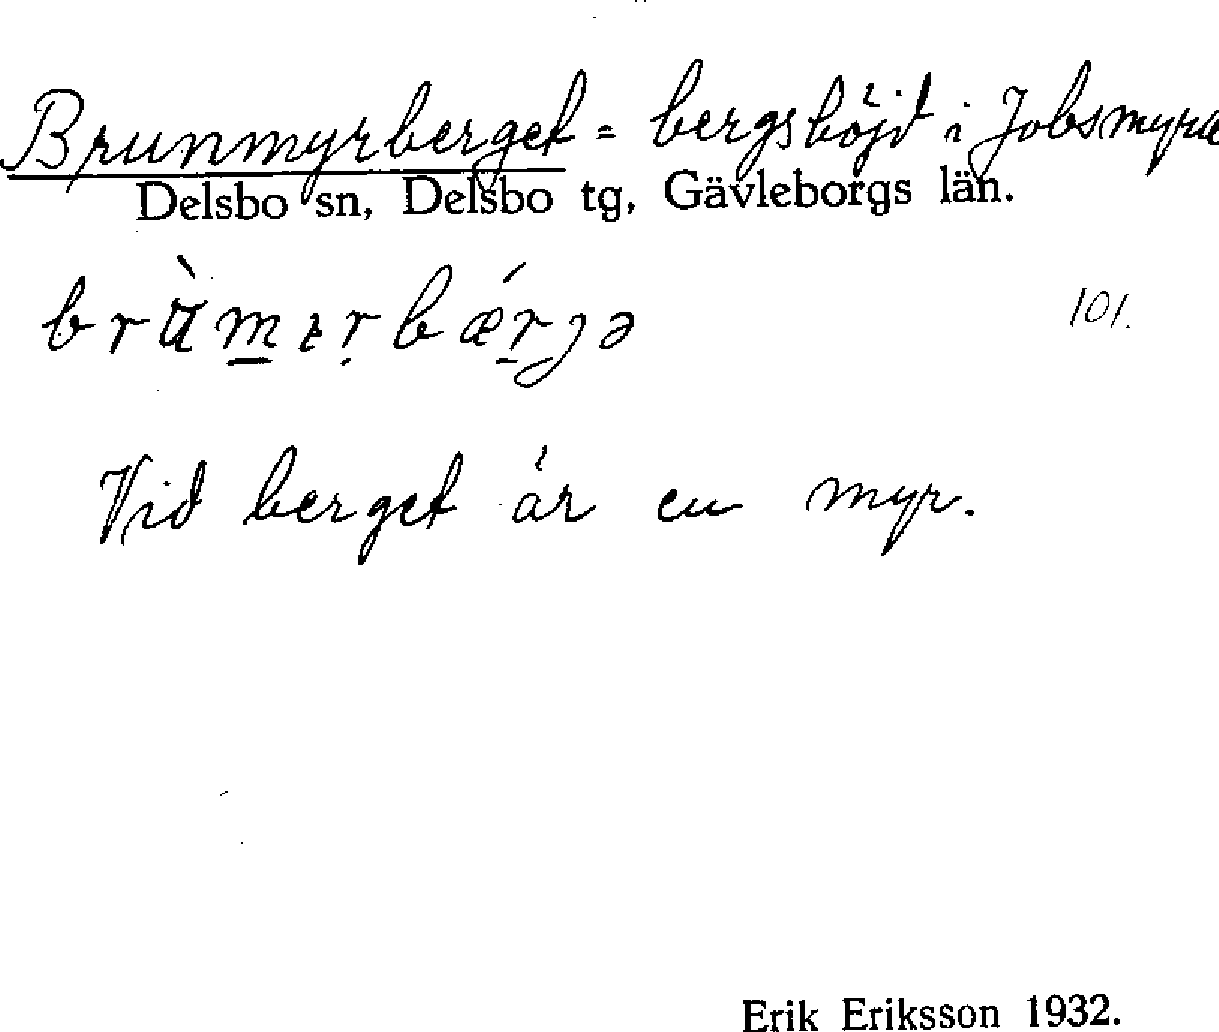 Brunmyrberget = bergshöjd i Jobsmyra
Delsbo sn, Delsbo tg, Gävleborgs län.
101.
Vid berget är en myr.
Erik Eriksson 1932.